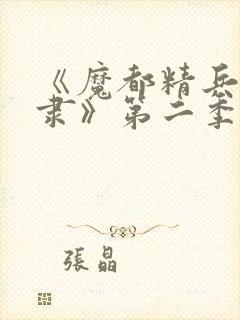 《魔都精兵
隶》第二季
張晶